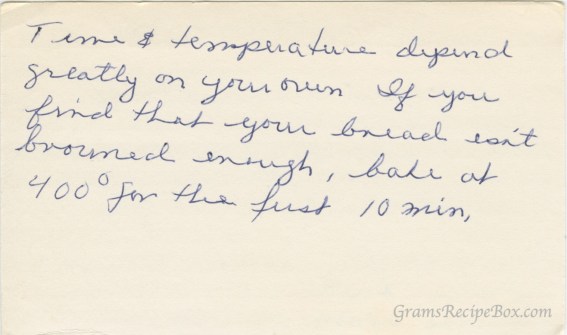 Time & temperature depend
greatly on your own If you
find that your bread isn't
browned enough, bake at
400° for the first 10 min.
GramsRecipeBox.com